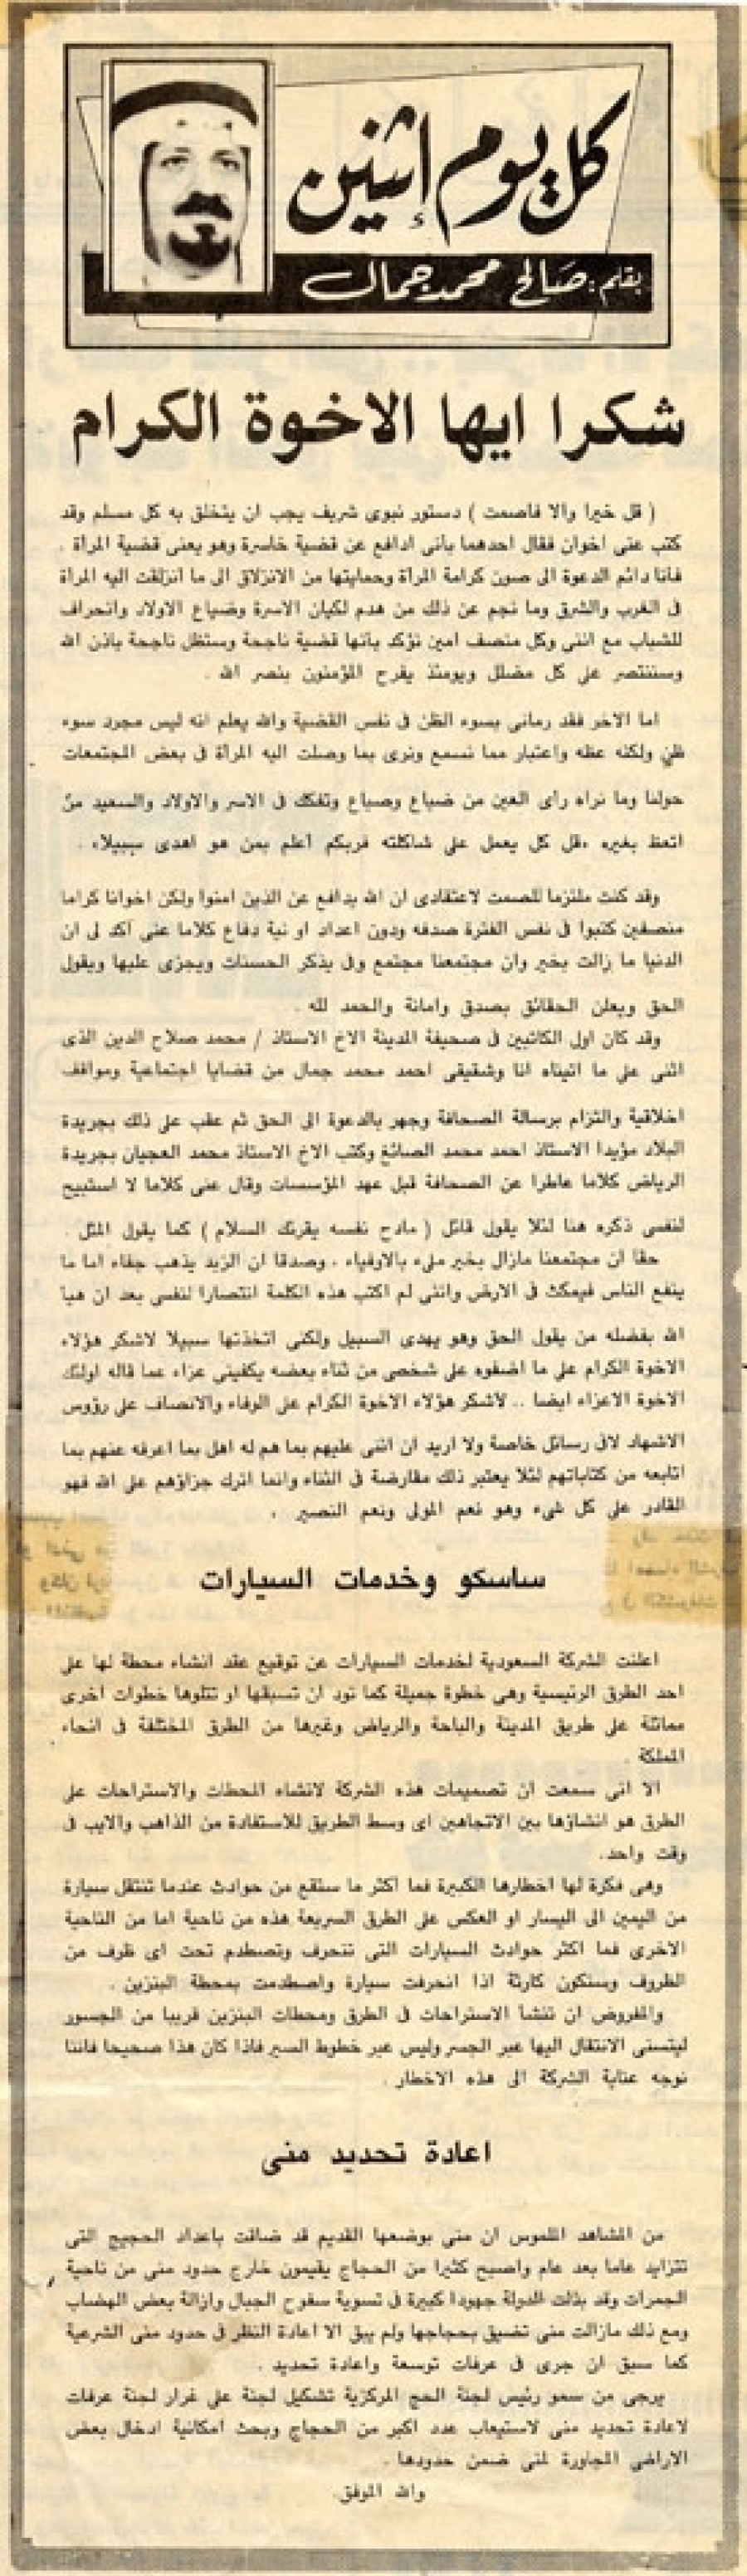 كل يوم إثنين
بقلم: صالح محمد جمال
شكرا ايها الاخوة الكرام
( قل خيرا والا فاصمت ) دستور نبوى شريف يجب ان يتخلق به كل مسلم وقد
كتب عنى اخوان فقال احدهما بأنى ادافع عن قضية خاسرة وهو يعنى قضية المرأة .
فأنا دائم الدعوة الى صون كرامة المرأة وحمايتها من الانزلاق الى ما انزلقت اليه المرأة
فى الغرب والشرق وما نجم عن ذلك من هدم لكيان الاسرة وضياع الاولاد وانحراف
للشباب مع اننى وكل منصف امين نؤكد بأنها قضية ناجحة وستظل ناجحة باذن الله
وسننتصر على كل مضلل ويومئذ يفرح المؤمنون بنصر الله .
اما الاخر فقد رمانى بسوء الظن فى نفس القضية والله يعلم انه ليس مجرد سوء
ظن ولكنه عظه واعتبار مما نسمع ونرى بما وصلت اليه المرأة فى بعض المجتمعات
حولنا وما نراه راى العين من ضياع وصياع وتفكك فى الاسر والاولاد والسعيد من
اتعظ بغيره «قل كل يعمل على شاكلته فربكم أعلم بمن هو اهدى سبيلا» .
وقد كنت ملتزما للصمت لاعتقادى ان الله يدافع عن الذين امنوا ولكن اخوانا كراما
منصفين كتبوا فى نفس الفترة صدفه ودون اعداد او نية دفاع كلاما عنى أكد لى ان
الدنيا ما زالت بخير وان مجتمعنا مجتمع وفى يذكر الحسنات ويجزى عليها ويقول
الحق ويعلن الحقائق بصدق وامانة والحمد لله .
وقد كان اول الكاتبين فى صحيفة المدينة الاخ الاستاذ / محمد صلاح الدين الذى
اثنى على ما اتيناه انا وشقيقى احمد محمد جمال من قضايا اجتماعية ومواقف
اخلاقية والتزام برسالة الصحافة وجهر بالدعوة الى الحق ثم عقب على ذلك بجريدة
البلاد مؤيدا الاستاذ احمد محمد الصائغ وكتب الاخ الاستاذ محمد العجيان بجريدة
الرياض كلاما عاطرا عن الصحافة قبل عهد المؤسسات وقال عنى كلاما لا استبيح
لنفسى ذكره هنا لئلا يقول قائل ( مادح نفسه يقرئك السلام ) كما يقول المثل .
حقا ان مجتمعنا مازال بخير ملىء بالاوفياء . وصدقا ان الزبد يذهب جفاء اما ما
ينفع الناس فيمكث فى الارض واننى لم اكتب هذه الكلمة انتصارا لنفسى بعد ان هيأ
الله بفضله من يقول الحق وهو يهدى السبيل ولكنى اتخذتها سبيلا لاشكر هؤلاء
الاخوة الكرام على ما اضفوه على شخصى من ثناء بعضه يكفينى عزاء عما قاله اولئك
الاخوة الاعزاء ايضا .. لاشكر هؤلاء الاخوة الكرام على الوفاء والانصاف على رؤوس
الاشهاد لافى رسائل خاصة ولا اريد ان اثنى عليهم بما هم له اهل بما اعرفه عنهم بما
اتابعه من كتاباتهم لئلا يعتبر ذلك مقارضة فى الثناء وانما اترك جزاؤهم على الله فهو
القادر على كل شىء وهو نعم المولى ونعم النصير .
ساسكو وخدمات السيارات
اعلنت الشركة السعودية لخدمات السيارات عن توقيع عقد انشاء محطة لها على
احد الطرق الرئيسية وهى خطوة جميلة كما نود ان تسبقها او تتلوها خطوات اخرى
مماثلة على طريق المدينة والباحة والرياض وغيرها من الطرق المختلفة فى انحاء
المملكة .
الا انى سمعت ان تصميمات هذه الشركة لانشاء المحطات والاستراحات على
الطرق هو انشاؤها بين الاتجاهين اى وسط الطريق للاستفادة من الذاهب والايب فى
وقت واحد.
وهى فكرة لها اخطارها الكبيرة فما اكثر ما ستقع من حوادث عندما تنتقل سيارة
من اليمين الى اليسار او العكس على الطرق السريعة هذه من ناحية اما من الناحية
الاخرى فما اكثر حوادث السيارات التى تنحرف وتصطدم تحت اى ظرف من
الظروف وستكون كارثة اذا انحرفت سيارة واصطدمت بمحطة البنزين .
والمفروض ان تنشأ الاستراحات فى الطرق ومحطات البنزين قريبا من الجسور
ليتسنى الانتقال اليها عبر الجسر وليس عبر خطوط السير فاذا كان هذا صحيحا فاننا
نوجه عناية الشركة الى هذه الاخطار .
اعادة تحديد منى
من المشاهد الملموس ان منى بوضعها القديم قد ضاقت باعداد الحجيج التى
تتزايد عاما بعد عام واصبح كثيرا من الحجاج يقيمون خارج حدود منى من ناحية
الجمرات وقد بذلت الدولة جهودا كبيرة فى تسوية سفوح الجبال وازالة بعض الهضاب
ومع ذلك مازالت منى تضيق بحجاجها ولم يبق الا اعادة النظر فى حدود منى الشرعية
كما سبق ان جرى فى عرفات توسعة واعادة تحديد .
يرجى من سمو رئيس لجنة الحج المركزية تشكيل لجنة على غرار لجنة عرفات
لاعادة تحديد منى لاستيعاب عدد اكبر من الحجاج وبحث امكانية ادخال بعض
الاراضى المجاورة لمنى ضمن حدودها .
والله الموفق.